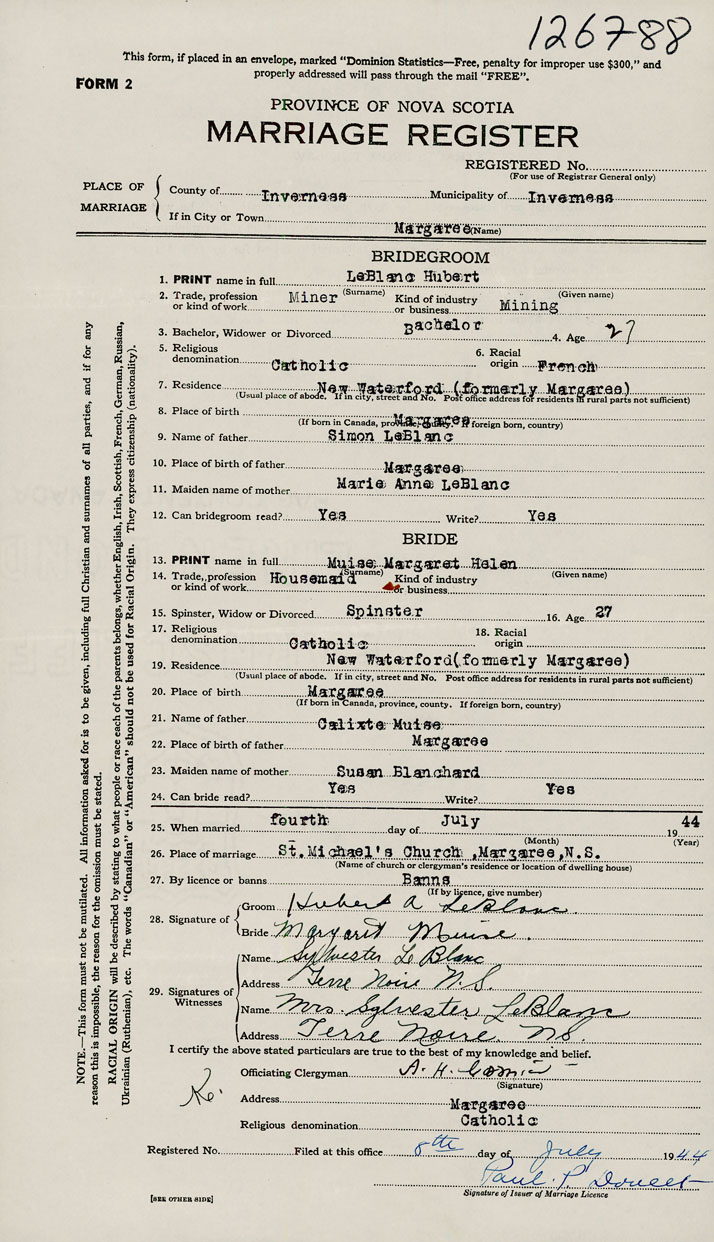 126788
This form, if placed in an envelope, marked "Dominion Statistics—Free, penalty for improper use $300," and
properly addressed will pass through the mail "FREE".
FORM 2
PROVINCE OF NOVA SCOTIA
MARRIAGE REGISTER
REGISTERED No.
(For use of Registrar General only)
PLACE OF MARRIAGE
County of Inverness Municipality of Inverness
If in City or Town Margaree (Name)
BRIDEGROOM
1. PRINT name in full LeBlanc Hubert
(Surname) (Given name)
2. Trade, profession or kind of work Miner Kind of industry or business Mining
3. Bachelor, Widower or Divorced Bachelor 4. Age 27
5. Religious denomination Catholic 6. Racial origin French
7. Residence New Waterford (formerly Margaree)
(Usual place of abode. If in city, street and No. Post office address for residents in rural parts not sufficient)
8. Place of birth Margaree
(If born in Canada, province, county. If foreign born, country)
9. Name of father Simon LeBlanc
10. Place of birth of father Margaree
11. Maiden name of mother Marie Anne LeBlanc
12. Can bridegroom read? Yes Write? Yes
BRIDE
13. PRINT name in full Muise Margaret Helen
(Surname) (Given name)
14. Trade, profession or kind of work Housemaid Kind of industry or business
15. Spinster, Widow or Divorced Spinster 16. Age 27
17. Religious denomination Catholic 18. Racial origin
19. Residence New Waterford(formerly Margaree)
(Usual place of abode. If in city, street and No. Post office address for residents in rural parts not sufficient)
20. Place of birth Margaree
(If born in Canada, province, county. If foreign born, country)
21. Name of father Calixte Muise
22. Place of birth of father Margaree
23. Maiden name of mother Susan Blanchard
24. Can bride read? Yes Write? Yes
25. When married fourth day of July 19 44
(Month) (Year)
26. Place of marriage St.Michael's Church ,Margaree,N.S.
(Name of church or clergyman's residence or location of dwelling house)
27. By licence or banns Banns
(If by licence, give number)
28. Signature of
Groom Hubert A LeBlanc.
Bride Margaret Muise.
29. Signatures of Witnesses
Name Sylvester LeBlanc
Address Terre Noire N.S.
Name Mrs. Sylvester LeBlanc
Address Terre Noire. N.S.
I certify the above stated particulars are true to the best of my knowledge and belief.
Officiating Clergyman A. H. Cormier
(Signature)
Address Margaree
Religious denomination Catholic
Registered No. Filed at this office 8th day of July 1944
Paul P Doucet
Signature of Issuer of Marriage Licence
[SEE OTHER SIDE]
NOTE.—This form must not be mutilated. All information asked for is to be given, including full Christian and surnames of all parties, and if for any
reason this is impossible, the reason for the omission must be stated.
RACIAL ORIGIN will be described by stating to what people or race each of the parents belongs, whether English, Irish, Scottish, French, German, Russian,
Ukrainian (Ruthenian), etc. The words "Canadian" or "American" should not be used for Racial Origin. They express citizenship (nationality).